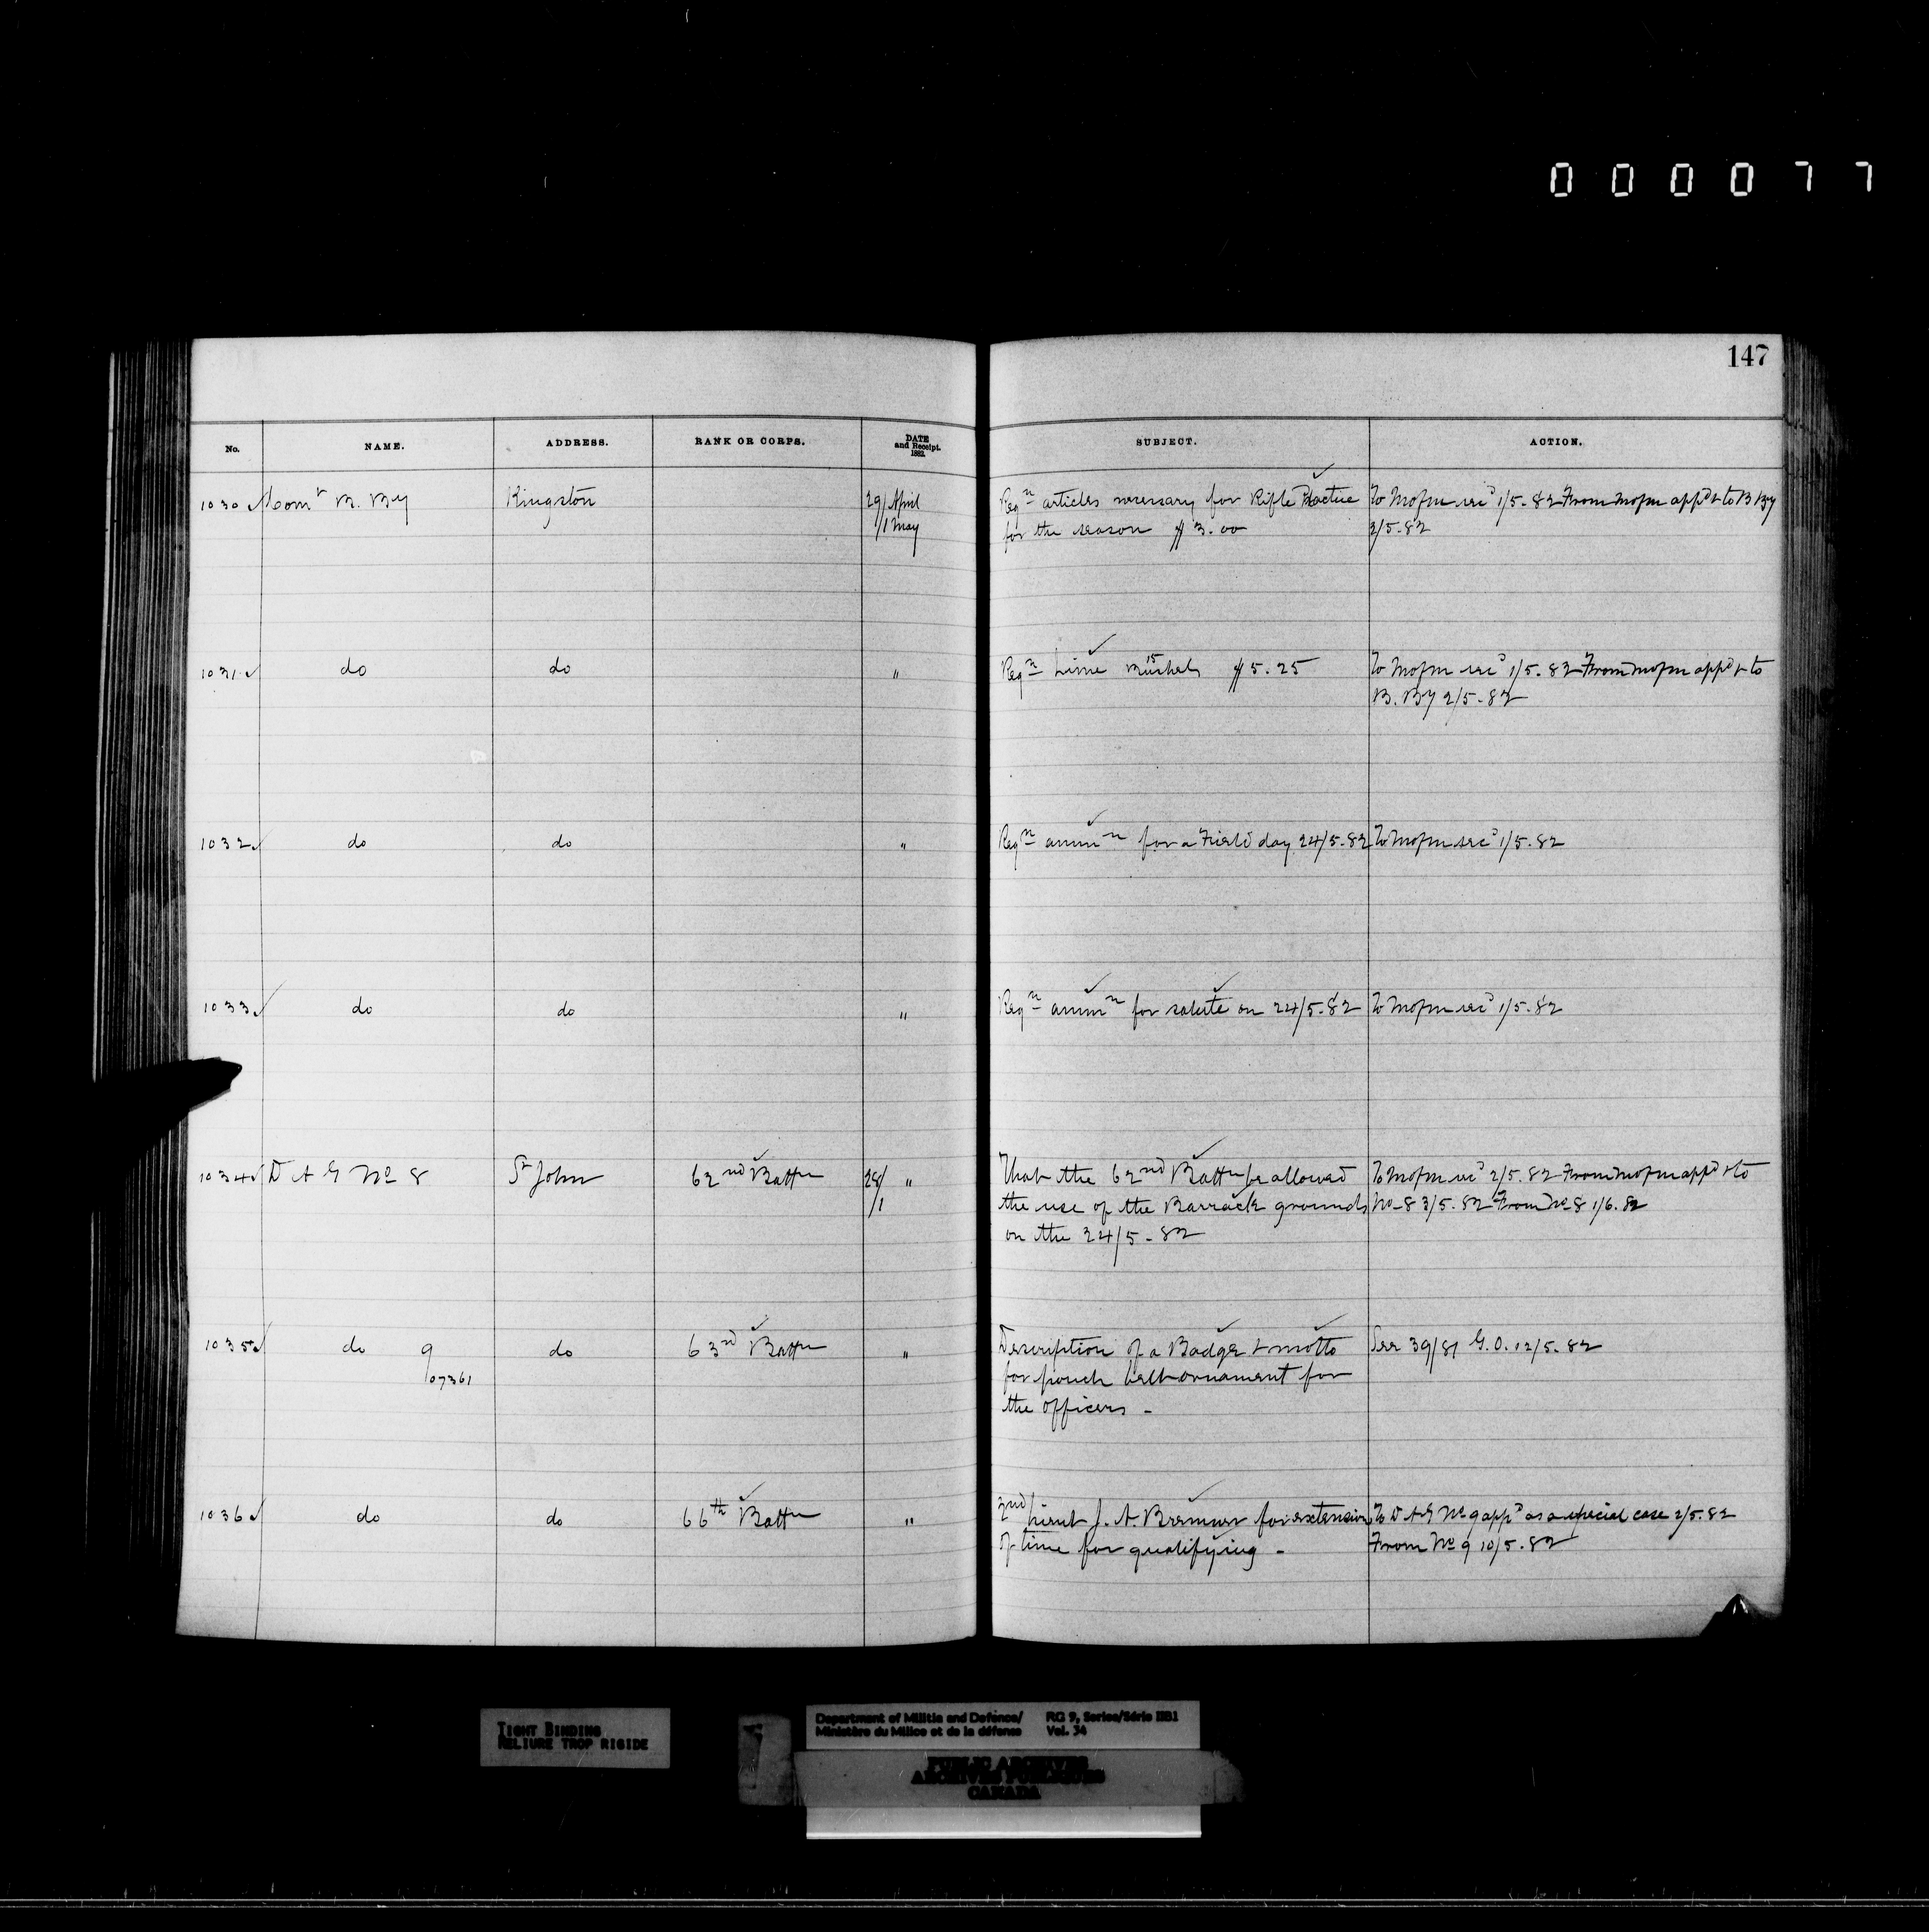 000077
147
No. NAME. ADDRESS. RANK OR CORPS. DATE and Receipt. 1882. SUBJECT. ACTION.
1030 Comt B. By Kingston 29/1 April May Reqn articles necessary for Rifle Practice To M of M rec'd 1/5.82 From M of M app'd & to B By
for the season $3.00 2/5.82
1031 do do " Reqn Lime 15 Bushels $5.25 To M of M rec'd 1/5.82 From M of M app'd & to
B. By 2/5.82
1032 do do " Reqn ammn for a Field day 24/5.82 To M of M rec'd 1/5.82
1033 do do " Reqn ammn for salute on 24/5.82 To M of M rec'd 1/5.82
1034 D A G No 8 St John 62nd Battn 28/1 " That the 62nd Battn be allowed To M of M rec'd 2/5.82 From M of M app'd & to
the use of the Barrack grounds No 8 3/5.82 From No 8 1/6.82
on the 24/5-82
1035 do 9 do 63rd Battn " Description of a Badge & motto See 39/81 G.O. 12/5.82
07361 for pouch belt ornament for
the officers -
1036 do do 66th Battn " 2nd Lieut J. A. Bremner for extension To D A G No 9 app'd as a special case 2/5.82
of time for qualifying - From No 9 10/5.82
TIGHT BINDING
RELIURE TROP RIGIDE
Department of Militia and Defence/ RG 9, Series/Série IIB1
Ministère du Milice et de la défense Vol. 34
PUBLIC ARCHIVES
ARCHIVES PUBLIQUES
CANADA